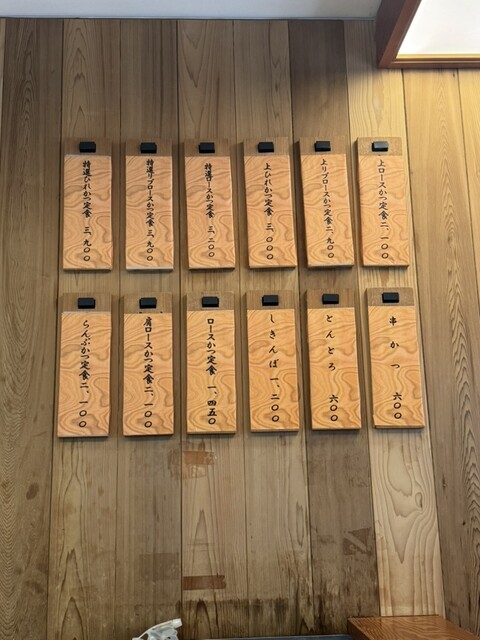 上ロースかつ定食 二、一〇〇
上リブロースかつ定食 二、九〇〇
上ひれかつ定食 三、〇〇〇
特選ロースかつ定食 三、二〇〇
特選リブロースかつ定食 三、九〇〇
特選ひれかつ定食 三、九〇〇
串かつ 六〇〇
とんとろ 六〇〇
しきんぼ 一、二〇〇
ロースかつ定食 一、四五〇
肩ロースかつ定食 二、一〇〇
らんぷかつ定食 二、一〇〇